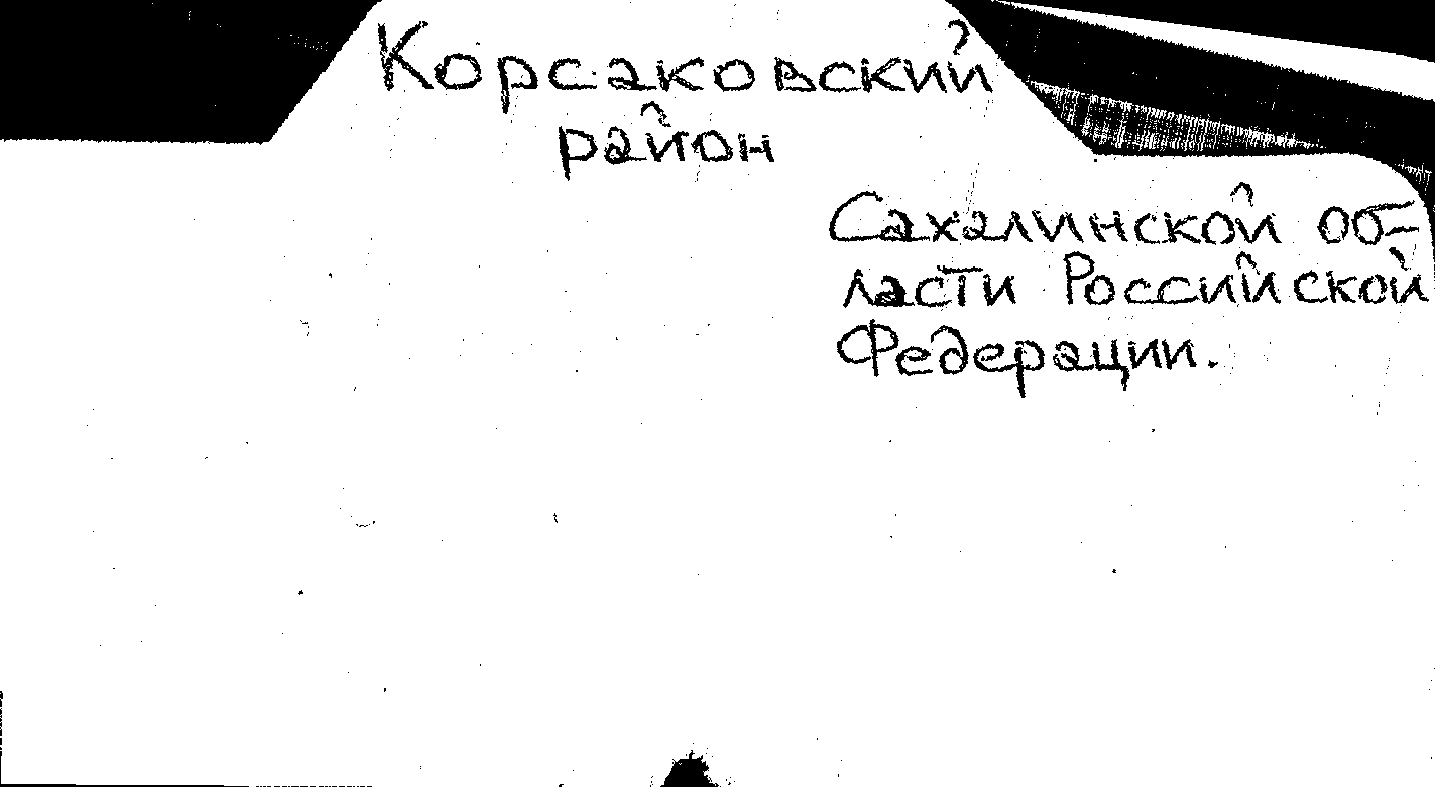 Корсаковский
район
Сахалинской об-
ласти Российской
Федерации.